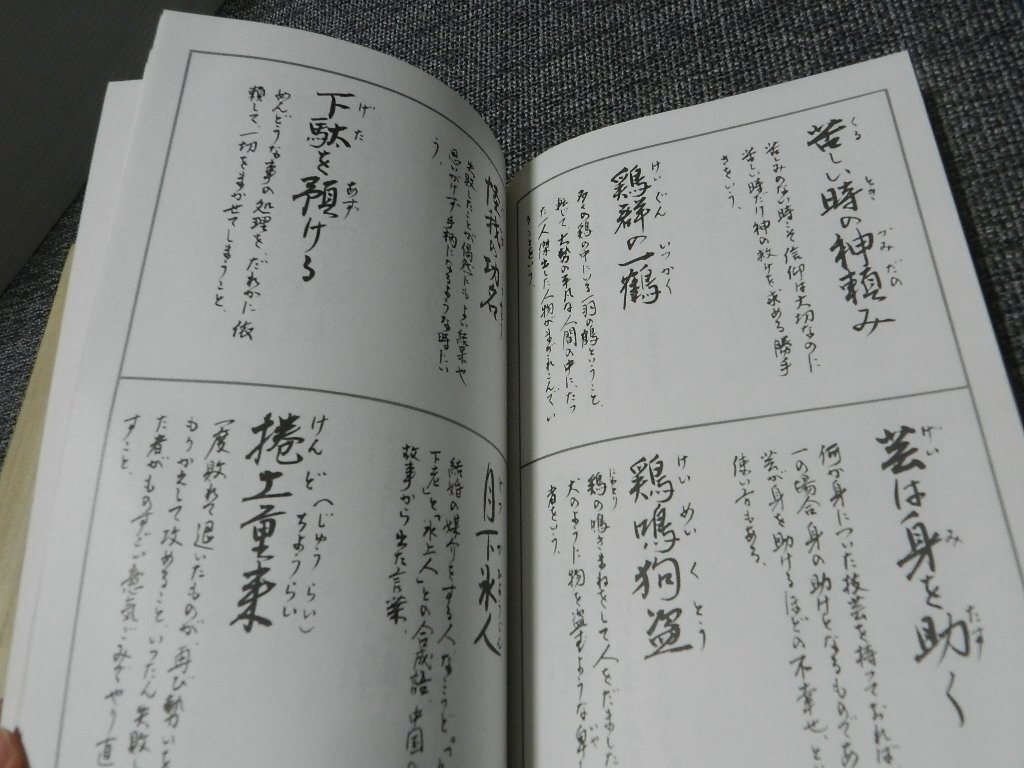 くる
とき
がみだの
苦しい時の神頼み
苦しみのない時こそ信仰は大切なのに
苦しい時だけ神の救けを求める勝手
さをいう。
けいぐん
いっかく
鶏群の一鶴
多くの鶏の中にいる一羽の鶴ということ、
転じて大勢の平凡な人間の中にたっ
た一人傑出した人物がまぎれこんでい
ることをいう。
げい
み
たす
芸は身を助く
何か身についた技芸を持っておれば
一の場合身の助けとなるものであ
芸が身を助けるほどの不幸せ、と
使い方もある。
けいめいくとう
鶏鳴狗盗
にわとり
鶏の鳴きまねをして人をだました
犬のように物を盗むような卑
者をいう。
怪我の功名
失敗したことが偶然にもよい結果や
思いがけず手柄になるような時にい
う。
げた
あず
下駄を預ける
めんどうな事の処理を、だれかに依
頼して、一切をまかせてしまうこと。
月下氷人
結婚の媒介をする人、なこうど。「月
下老」と、「氷上人」との合成語。中国の
故事から出た言葉。
けんど(じゅうらい)
ちょうらい
捲土重来
一度敗れて退いたものが、再び勢いを
もりかえして攻めること。いったん失敗し
た者がものすごい意気ごみでやり直
すこと。